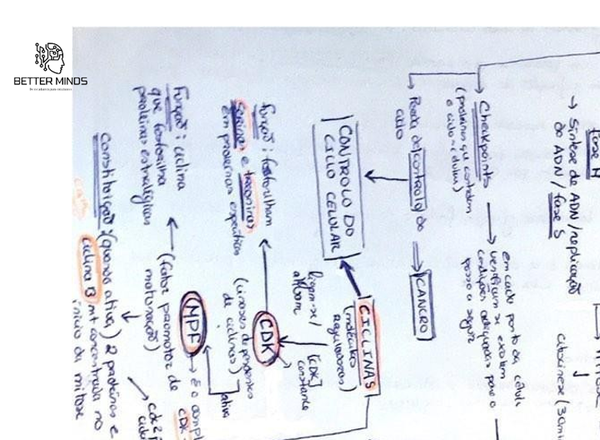 BETTER MINDS
Fase M
→ Síntese de ADN/replicação
do ADN/fase S
Checkpoints
(proteínas que controlam
o ciclo celular)
em cada ponto da célula
verificam se existem
condições adequadas para o
passo a seguir
Perda de controlo do
ciclo
→ CANCRO
CONTROLO DO
CICLO CELULAR
CICLINAS
(moléculas
reguladoras)
ligam-se/
ativam
[CDK]
constante
CDK
(cinases dependentes
de ciclinas)
função: fosforilam
serinas e treoninas
em proteínas específicas
ativa
MPF → é o compl
CDK
(fator promotor da
maturação)
Função: ciclina
que fosforila
proteínas estratégicas
cdc2
Constituição: (quando ativa) 2 proteínas e
ciclina B mt concentrada no
início da mitose